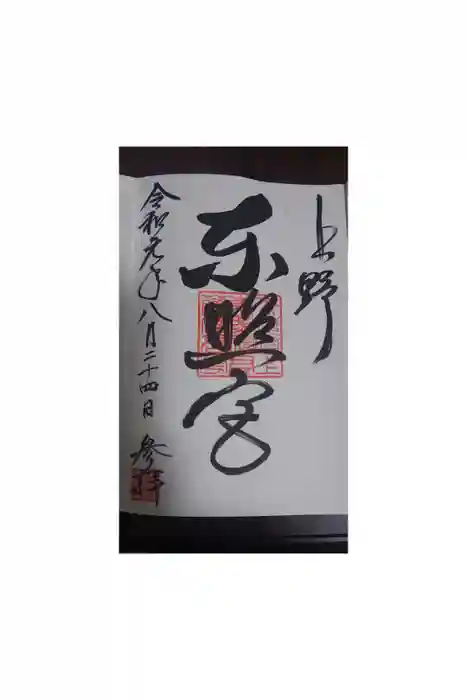 上野
东照宮
令和元年八月二十四日 参拝